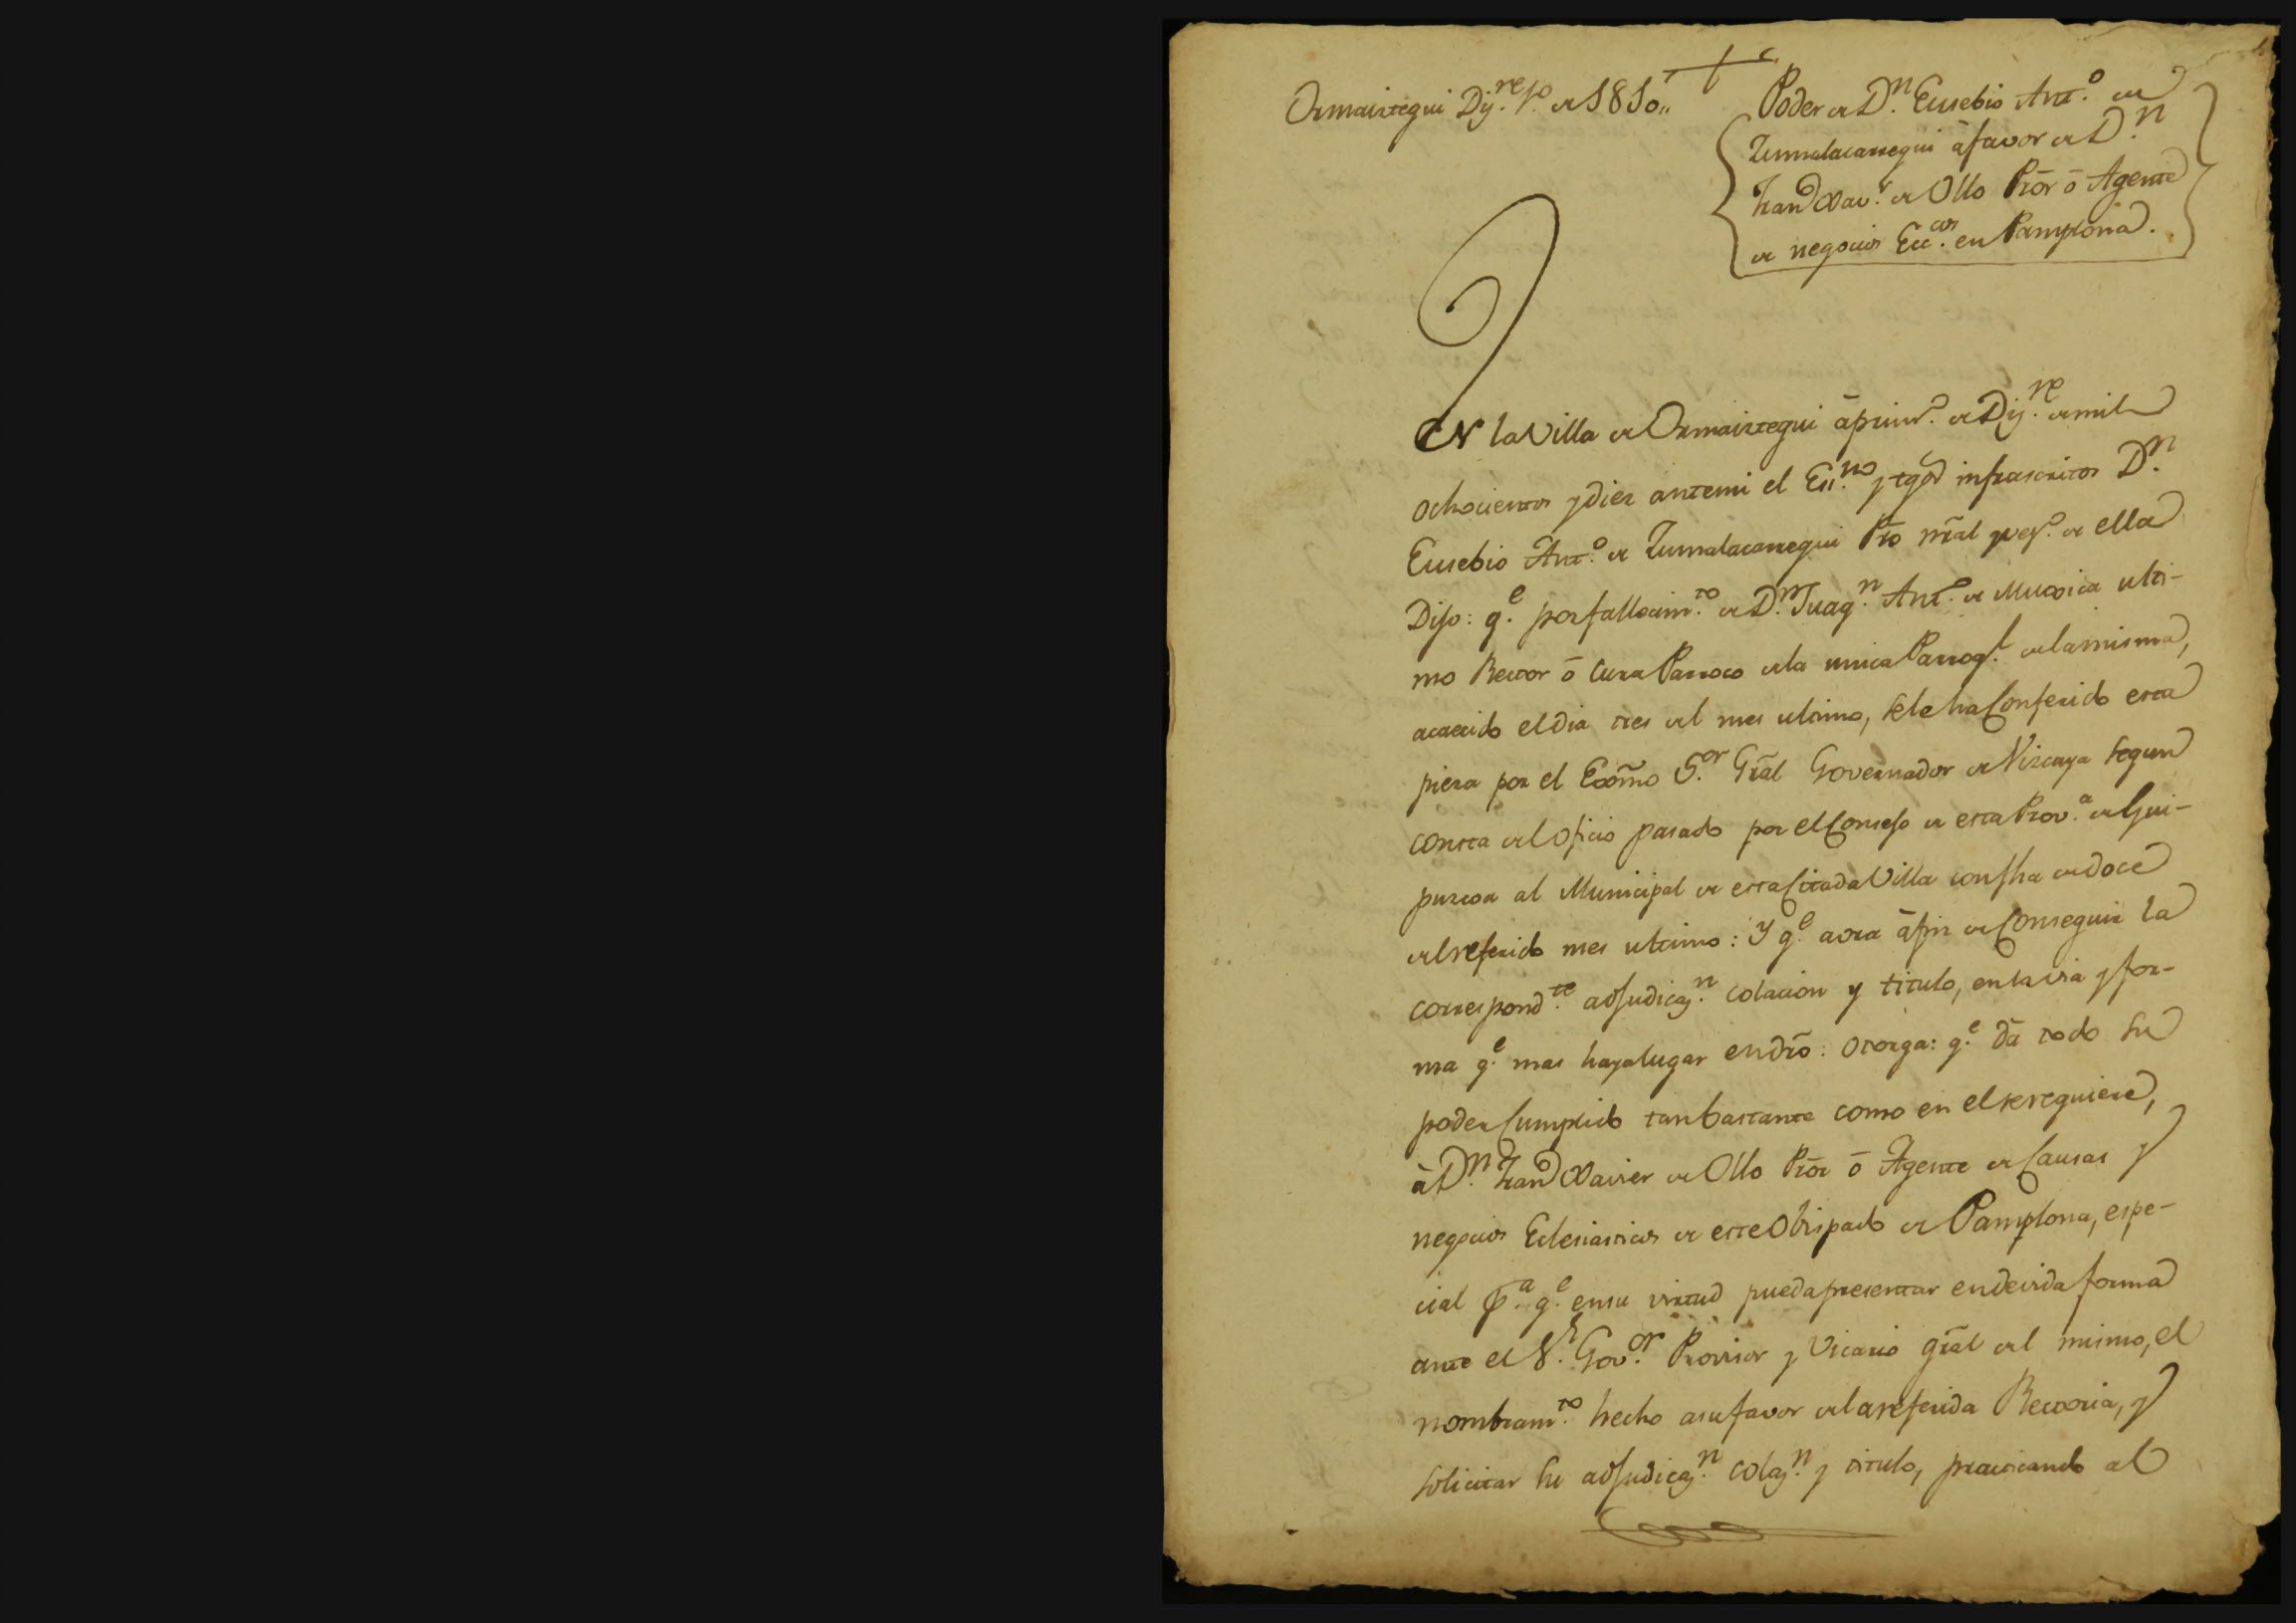 Ormaiztegui Diz.re 1.o de 1810,,
Poder de D.n Eusebio Ant.o de
Zumalacarregui à favor de D.n
Fran.co Xav.r de Ollo Prōr ō Agente
de negocios Ecc.cos en Pamplona.
EN la Villa de Ormaiztegui à prim.o de Diz.re de mil
ochocientos y diez ante mi el Ess.no y tgos infrascritos D.n
Eusebio Ant.o de Zumalacarregui Pro nrāl y vez.o de ella
Dijo: q.e por fallecim.to de D.n Juaq.n Ant.o de Muxica ulti-
mo Rector ō Cura Parroco de la unica Parroq.l de la misma,
acaecido el dia tres del mes ultimo, se le ha Conferido esta
pieza por el Exōmo S.or Grāl Governador de Vizcaya segun
consta del Oficio pasado por el Consejo de esta Prov.a de Gui-
puzcoa al Municipal de esta Citada Villa con fha de doce
del referido mes ultimo: Y q.e aora à fin de Conseguir la
correspond.te adjudicaz.n colacion y titulo, en la via y for-
ma q.e mas haya lugar en drō: Otorga: q.e dà todo su
poder Cumplido tan bastante como en el se requiere,
à D.n Fran.co Xavier de Ollo Prōr ō Agente de Causas y
negocios Eclesiasticos de este Obispado de Pamplona, espe-
cial p.a q.e en su virtud pueda presentar en devida forma
ante el S.r Gov.or Provisor y Vicario grāl del mismo, el
nombram.to hecho a su favor de la referida Rectoria, y
solicitar su adjudicaz.n colaz.n y titulo, practicando al